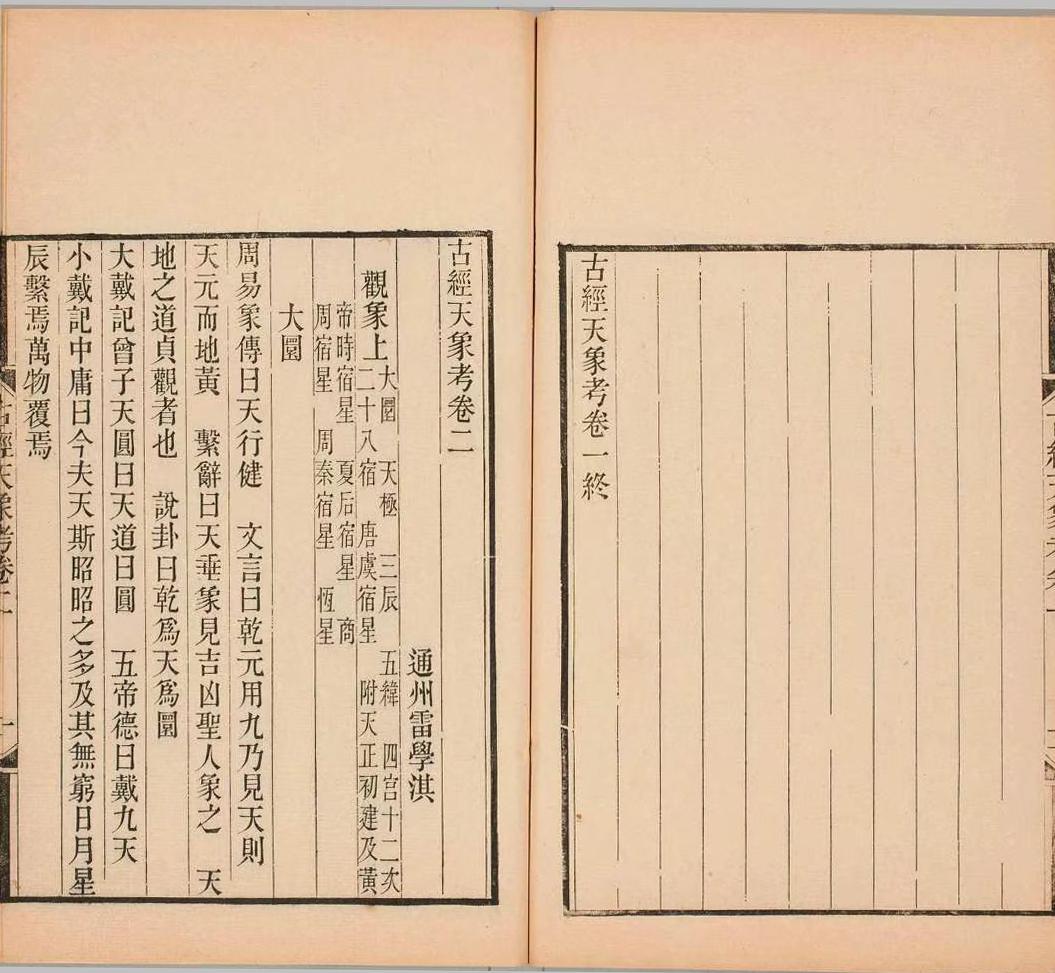 古經天象考卷一終
古經天象考卷二
通州雷學淇
觀象上 大圜 天極 三辰 五緯 四宮十二次
二十八宿 唐虞宿星 附天正初建及黃
帝時宿星 夏后宿星 商
周宿星 周秦宿星 恆星
大圜
周易象傳曰天行健 文言曰乾元用九乃見天則
天元而地黃 繫辭曰天垂象見吉凶聖人象之 天
地之道貞觀者也 說卦曰乾爲天爲圜
大戴記曾子天圓曰天道曰圓 五帝德曰戴九天
小戴記中庸曰今夫天斯昭昭之多及其無窮日月星
辰繫焉萬物覆焉
古經天象考卷二 一